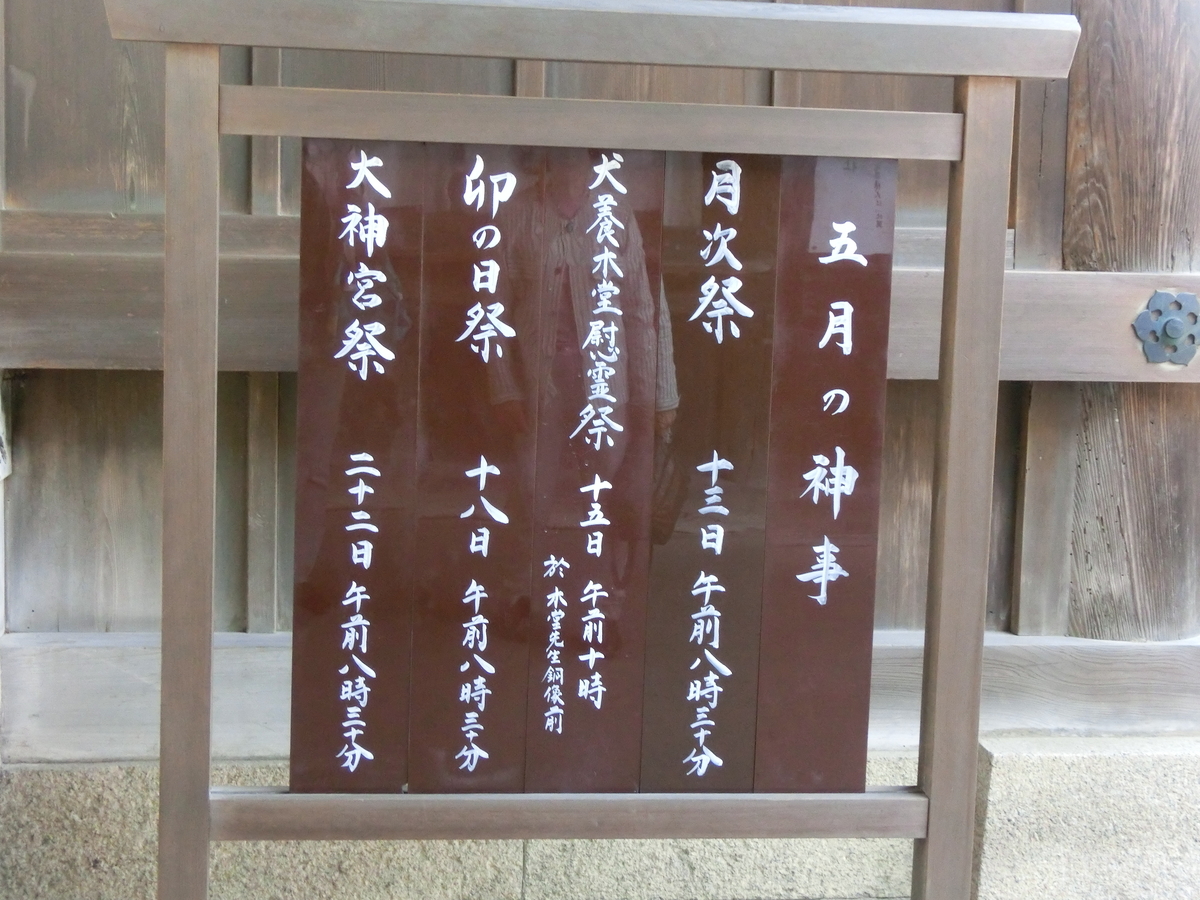 五月の神事
月次祭 十三日 午前八時三十分
犬養木堂慰霊祭 十五日 午前十時
於 木堂先生銅像前
卯の日祭 十八日 午前八時三十分
大神宮祭 二十二日 午前八時三十分